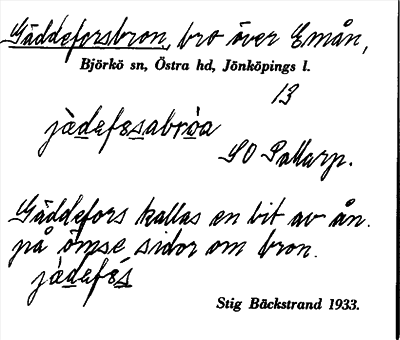 Gäddeforsbron, bro över Emån,
Björkö sn, Östra hd, Jönköpings l.
13
jàdefs̲abròa
SO Sallarp.
Gäddefors kallas en bit av ån
på ömse sidor om bron.
jàdefs
Stig Bäckstrand 1933.